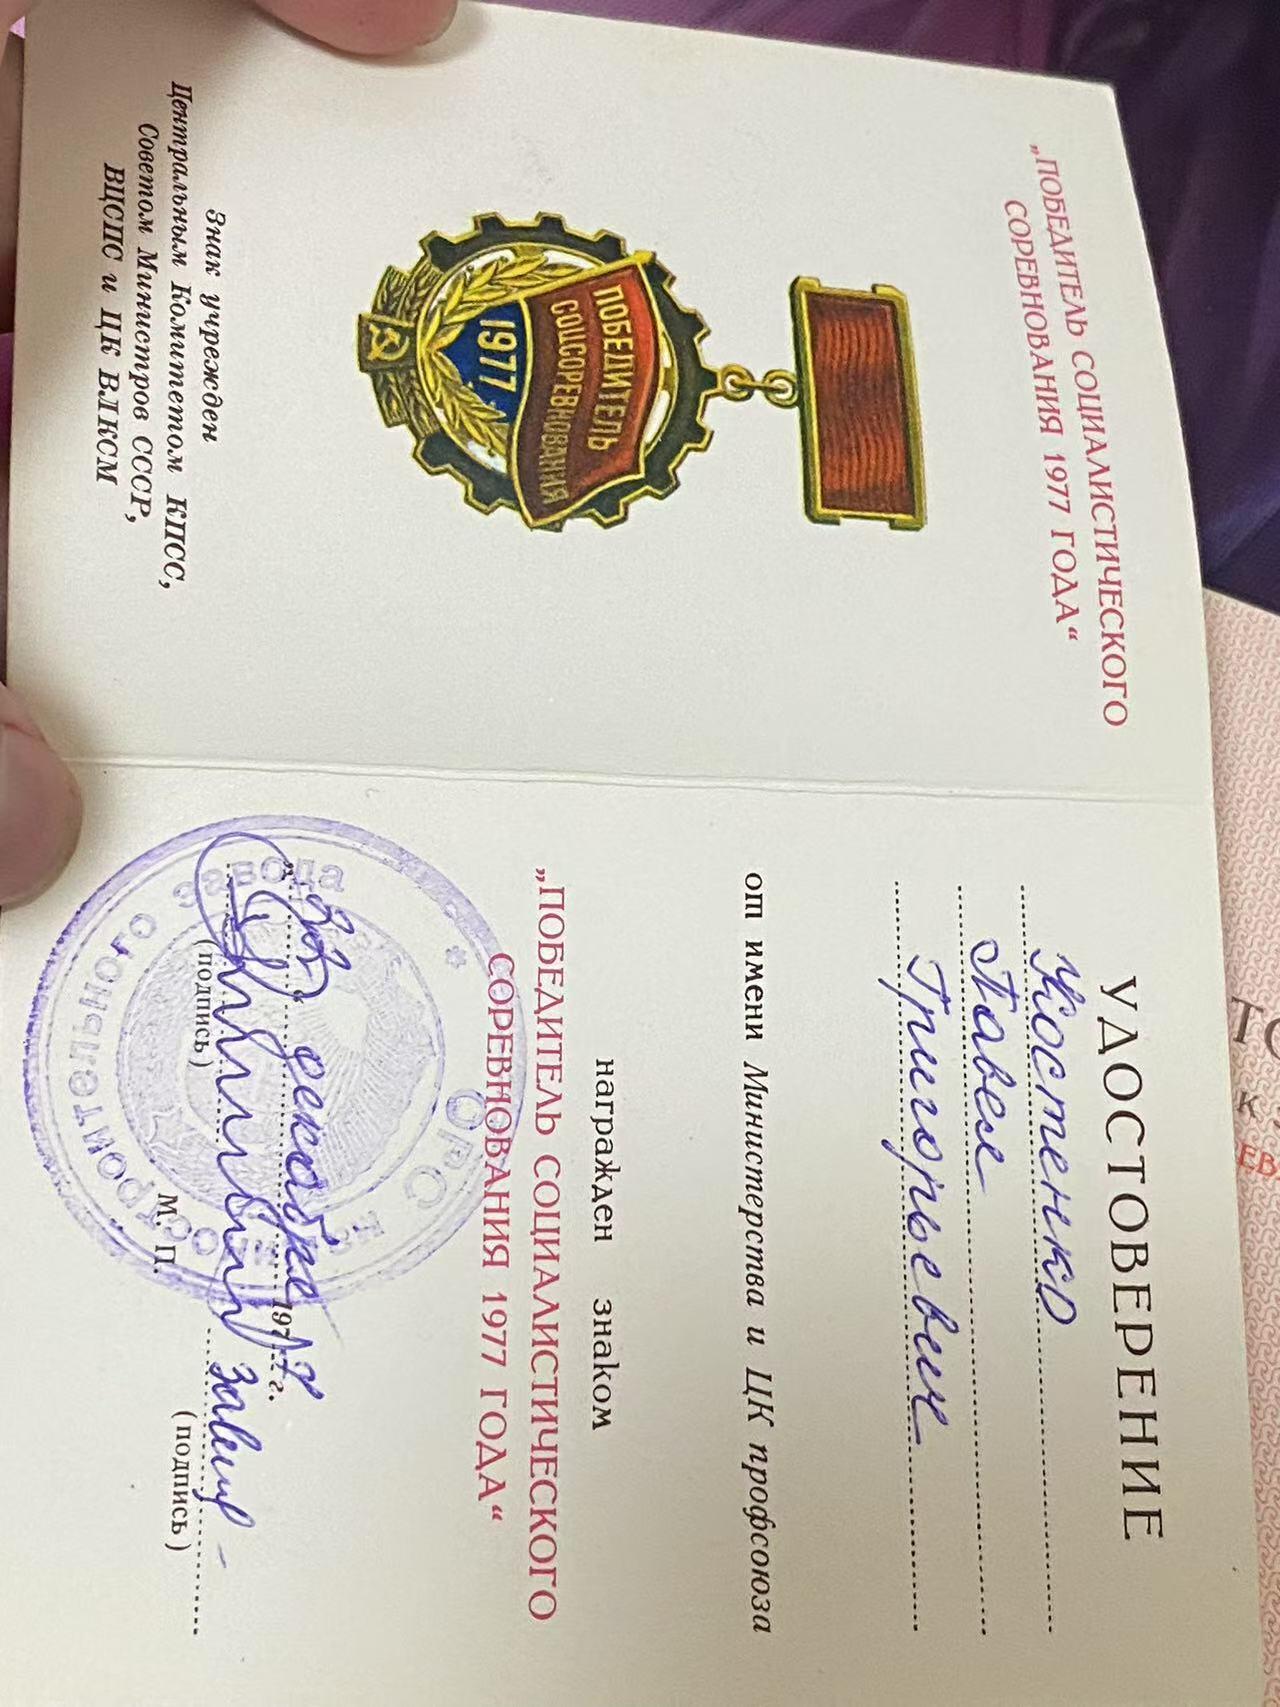 „ПОБЕДИТЕЛЬ СОЦИАЛИСТИЧЕСКОГО
СОРЕВНОВАНИЯ 1977 ГОДА“
ПОБЕДИТЕЛЬ
СОЦСОРЕВНОВАНИЯ
1977
Знак учрежден
Центральным Комитетом КПСС,
Советом Министров СССР,
ВЦСПС и ЦК ВЛКСМ
УДОСТОВЕРЕНИЕ
Костенко
Павел
Григорьевич
от имени Министерства и ЦК профсоюза
награжден знаком
„ПОБЕДИТЕЛЬ СОЦИАЛИСТИЧЕСКОГО
СОРЕВНОВАНИЯ 1977 ГОДА“
декабря 1977 г.
(подпись)
М. П.
(подпись)
ОРС
строительного завода